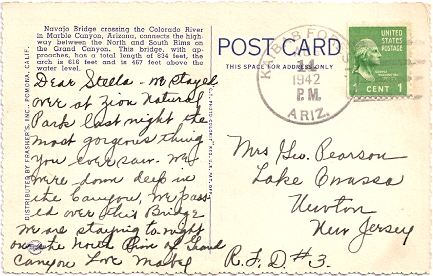 Navajo Bridge crossing the Colorado River
in Marble Canyon, Arizona, connects the high-
way between the North and South Rims on
the Grand Canyon. This bridge, with ap-
proaches, has a total length of 834 feet, the
arch is 616 feet and is 467 feet above the
water level.
POST CARD
THIS SPACE FOR ADDRESS ONLY
1942
P.M.
ARIZ.
UNITED
STATES
POSTAGE
1 CENT 1
DISTRIBUTED BY FRASHER'S, INC., POMONA, CALIF.
Dear Stella - We stayed
over at Zion National
Park last night the
most gorgeous thing
you ever saw. We
were down deep in
the Canyon, we pass-
ed over this Bridge
we are staying to-night
on the North Rim of Grand
Canyon Love Mabel
Mrs Geo. Pearson
Lake
Newton
New Jersey
R.F.D. #3.